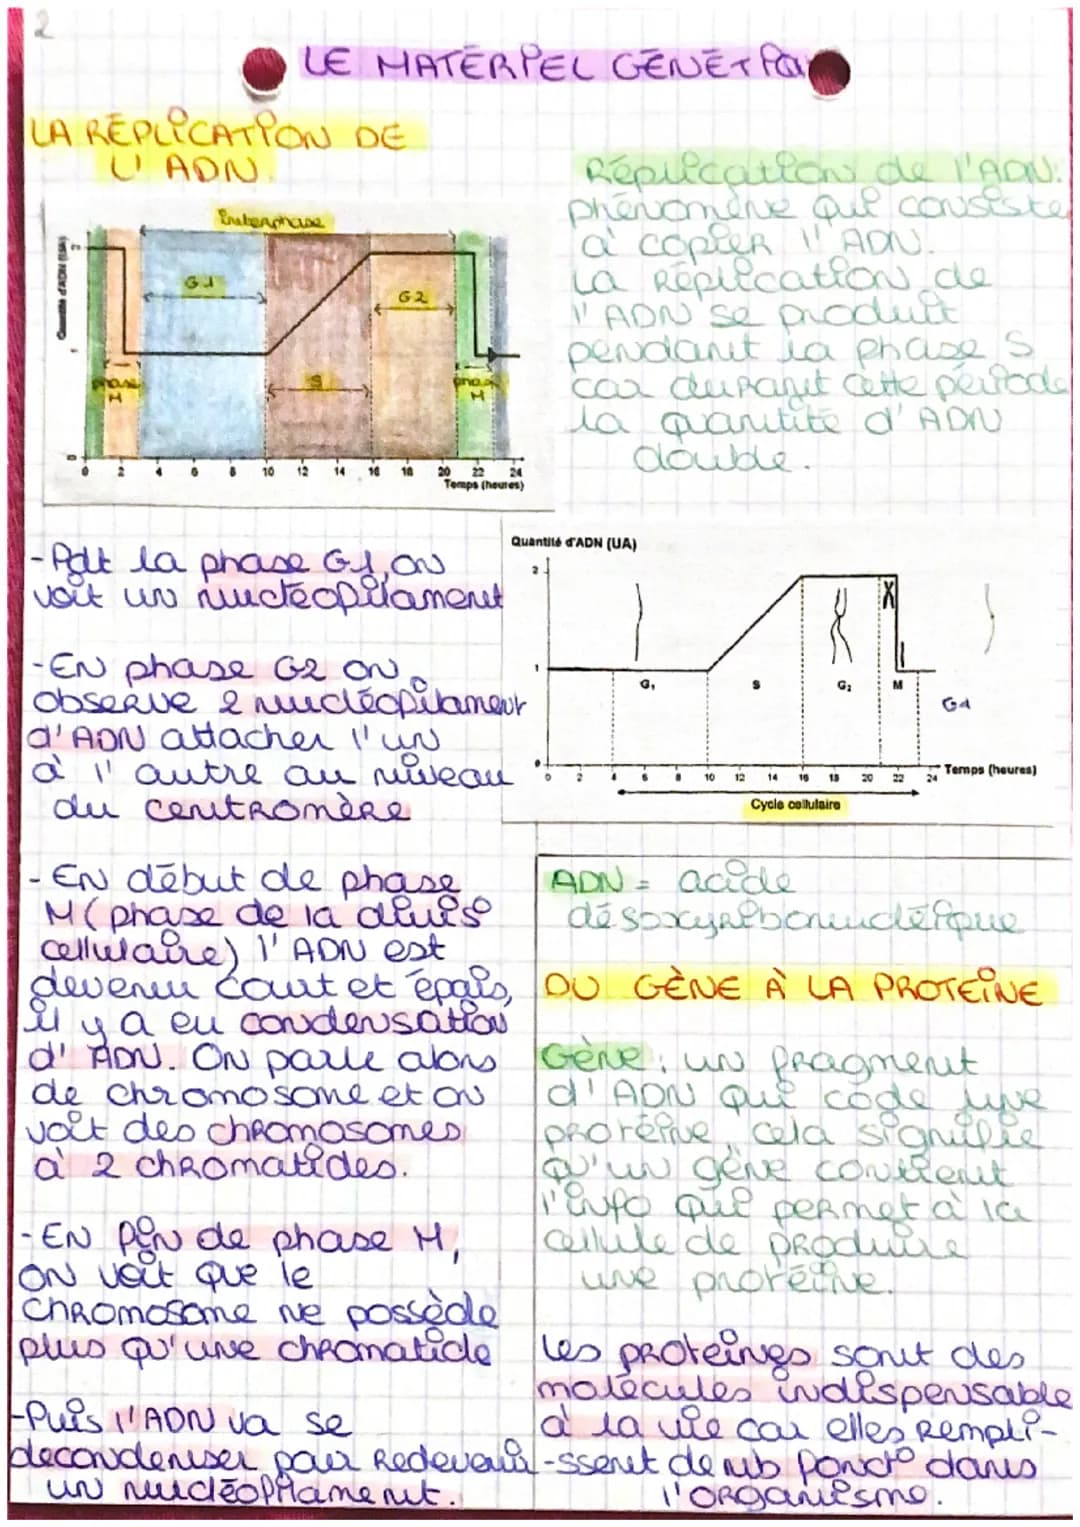 2
LE MATÉRIEL GÉNÉTIQUE
LA RÉPLICATION DE
L'ADN.
Interphase
Quantité d'ADN (UA)
2
1
0
G1
S
G2
phase
M
phase
M
0 2 4 6 8 10 12 14 16 18 20 22 24
Temps (heures)
Réplication de l'ADN:
phénomène qui consiste
à copier l'ADN.
La Réplication de
l'ADN se produit
pendant la phase S
car durant cette période
la quantité d'ADN
double.
- Pdt la phase G1, on
voit un nucléofilament
- En phase G2 on
observe 2 nucléofilament
d'ADN attacher l'un
à l'autre au niveau
du centromère
Quantité d'ADN (UA)
2
1
0
G₁
S
G₂
M
G1
0 2 4 6 8 10 12 14 16 18 20 22 24
Temps (heures)
Cycle cellulaire
- En début de phase
M (phase de la divis°
cellulaire) l'ADN est
devenu court et épais,
il y a eu condensation
d'ADN. On parle alors
de chromosome et on
voit des chromosomes
à 2 chromatides.
- En fin de phase M,
on voit que le
chromosome ne possède
plus qu'une chromatide
- Puis l'ADN va se
decondenser pour redevenir
un nucléofilament.
ADN = acide
désoxyribonucléique
DU GÈNE À LA PROTÉINE
Gène : un fragment
d'ADN qui code une
protéine, cela signifie
qu'un gène contient
l'info qui permet à la
cellule de produire
une protéine.
Les protéines sont des
molécules indispensable
à la vie car elles rempli-
-ssent de nb fonct° dans
l'organisme.